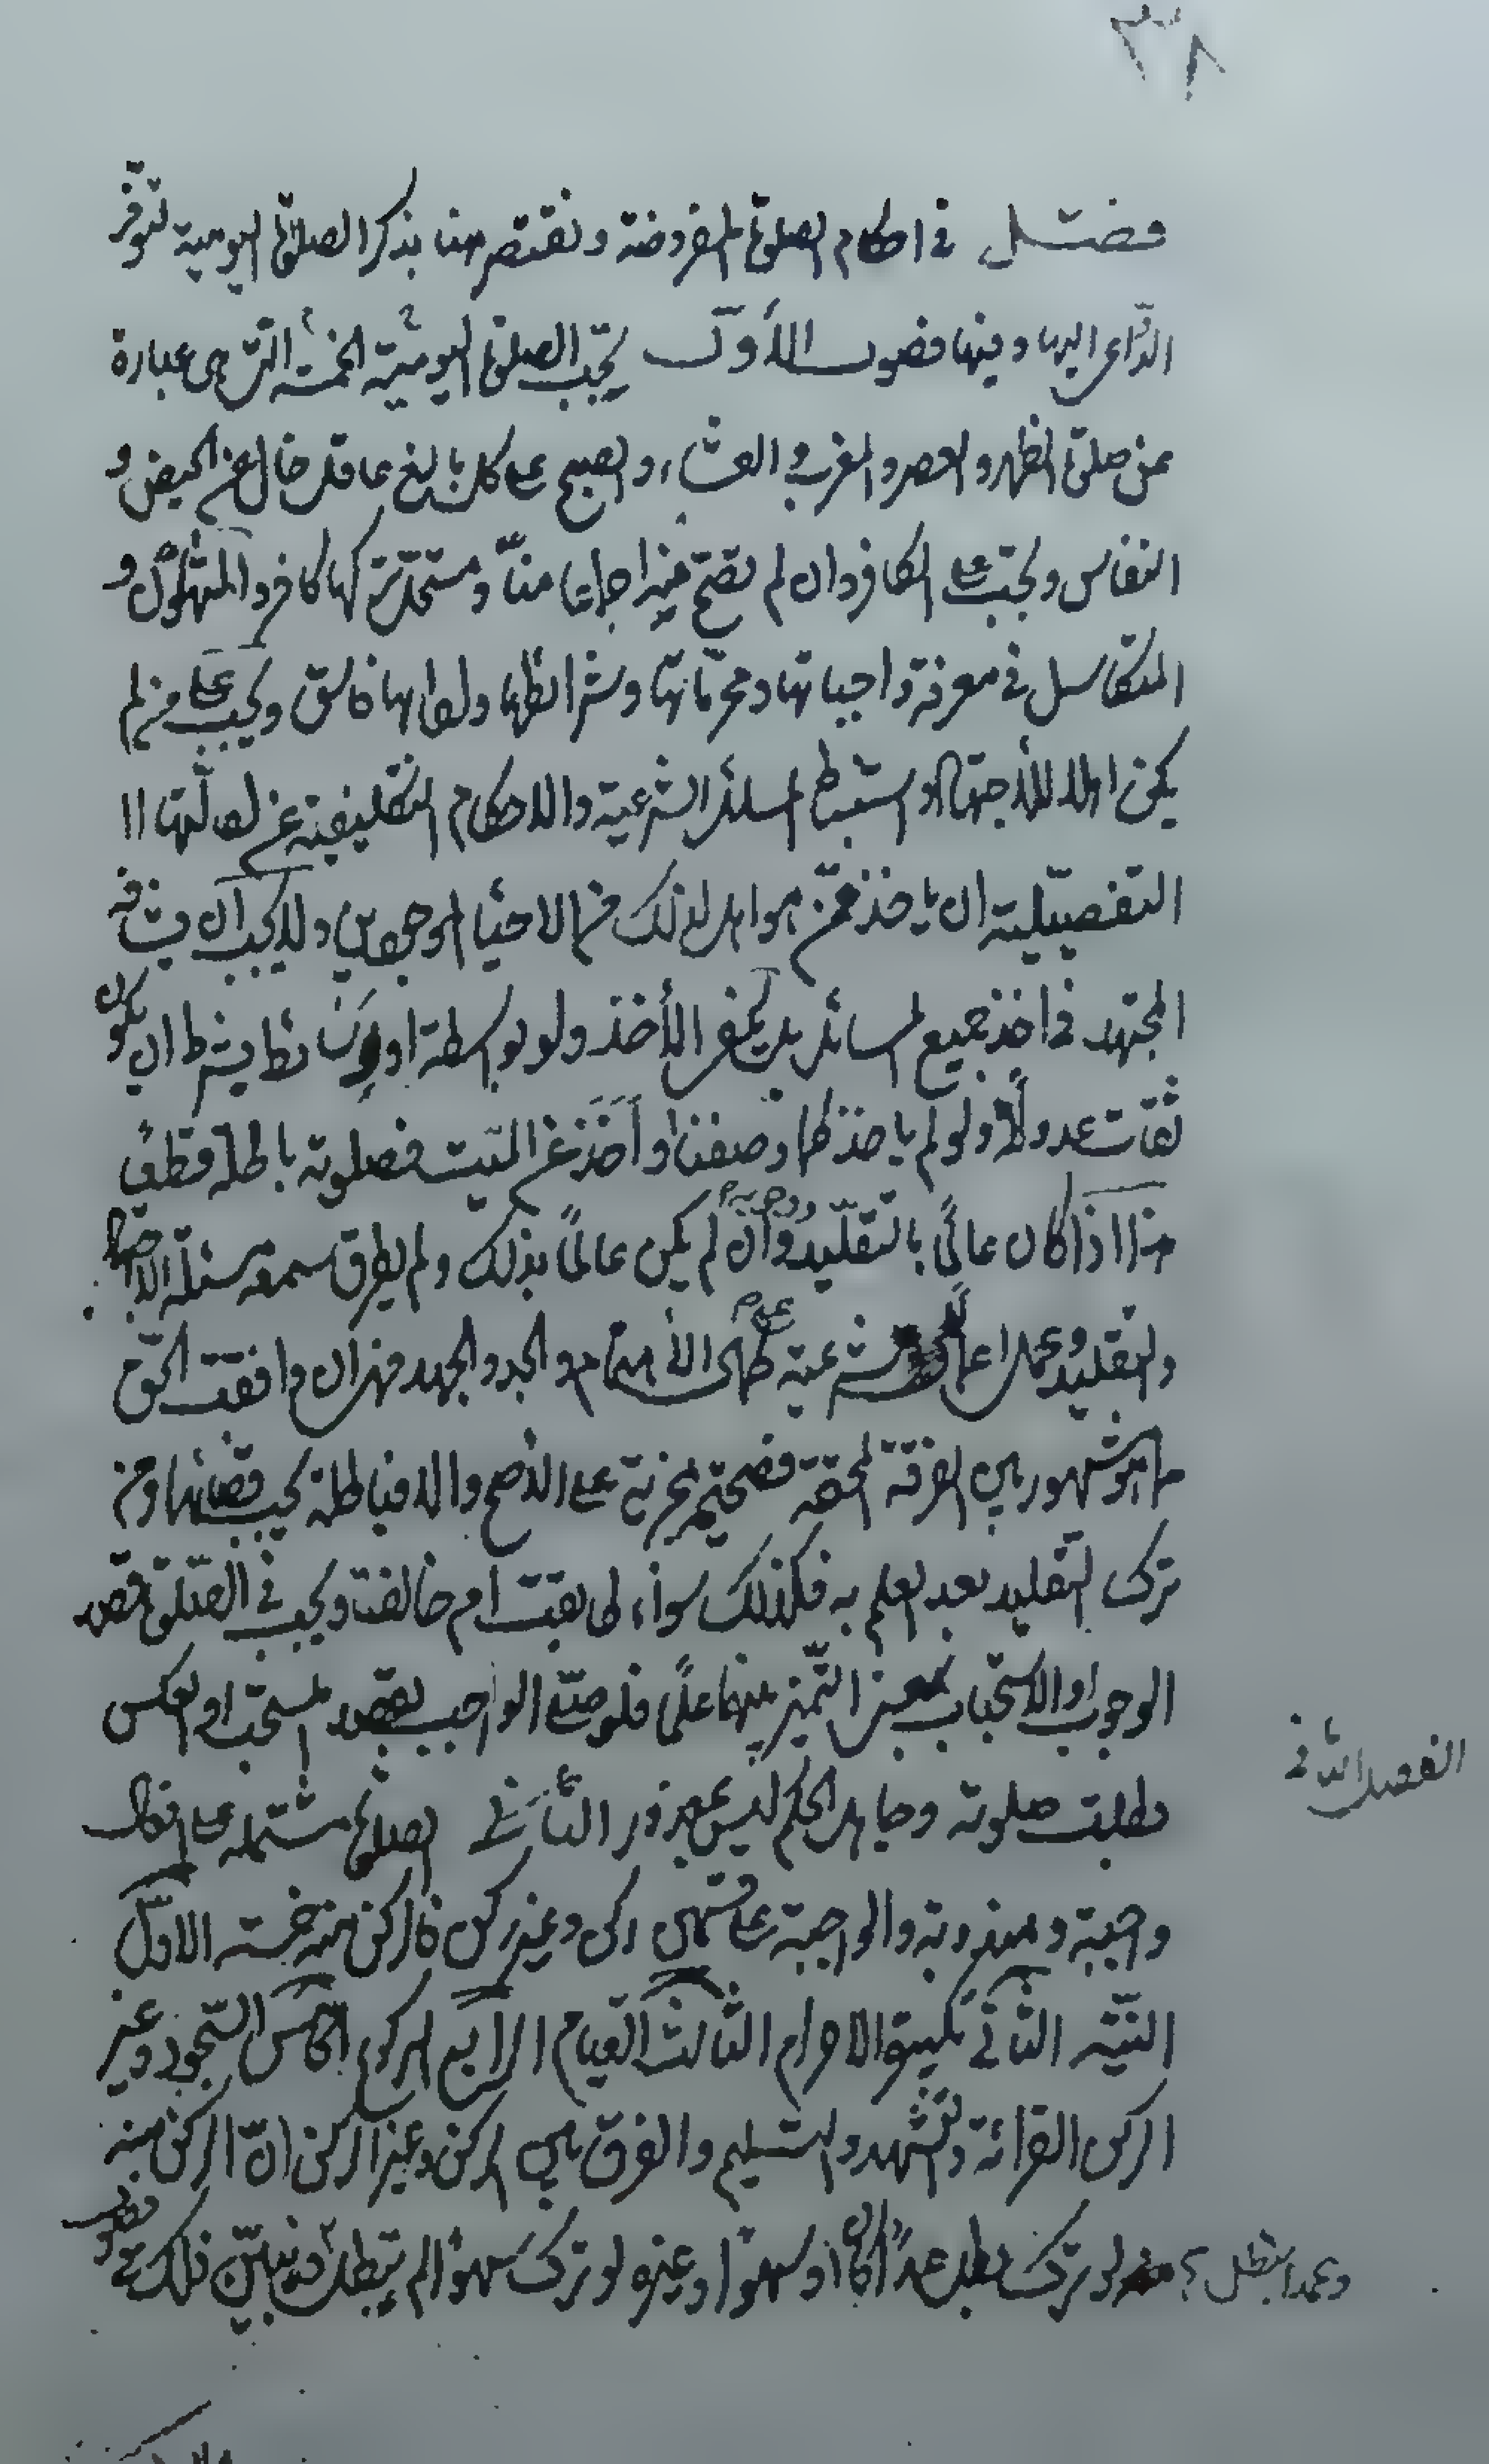 ٣٨
فصل في احكام الصلوة المفروضة ونقتصر هنا بذكر الصلوة اليومية لتوفر
الدّاعي اليها وفيها فصول الأوّل يجب الصلوة اليوميّة الخمسة التي هي عبارة
عن صلوة الظهر والعصر والمغرب والعشاء والصبح على كل بالغ عاقل خال عن الحيض و
النفاس وتجب على الكافر وان لم تصح منه اجماعا منّا ومستحلّ تركها كافر والمتهاون و
المتكاسل في معرفة واجباتها ومحرّماتها وشرائطها فاسق ويجب على من لم
يكن اهلا للأجتهاد واستنباط المسائل الشرعية والاحكام التكليفية عن
التفصيلية ان ياخذ عمّن هو اهل لذلك من الاحياء الموجودين ولا يجب ان
المجتهد في اخذ جميع المسائل بل يكفي الأخذ ولو بواسطة او وسائط بشرط ان يكون
ثقات عدولًا ولو لم ياخذ كما وصفنا او أخذ عن الميّت فصلوته باطلة قطعا
هذا اذا كان عالمًا بالتقليد ووجوبه وان لم يكن عالمًا بذلك ولم يطرق سمعه مسئلة الاجتهاد
والتقليد وعمل اعمالًا شرعية على الأهتمام والجد والجهد فهذا ان وافقت الحق
ما هو مشهور بين الفرقة المحقة فصحيحة مجزية على الأصح والا فباطلة يجب قضائها ومن
ترك التقليد بعد العلم به فكذلك سواء طابقت ام خالفت ويجب في الصّلوة قصد
الوجوب او الاستحباب بمعنى التّميز بينهما علمًا فلو صلّى الواجب بقصد المستحب او العكس
بطلت صلوته وجاهل الحكم ليس بمعذور الثّاني الصلوة مشتملة على افعال
الفصل الثاني
واجبة ومندوبة والواجبة على قسمين ركن وغير ركن فالركن منه خمسة الاوّل
النيّة الثاني تكبيرة الاحرام الثالث القيام الرابع الركوع الخامس السّجود وغير
الركن القرائة والتشهد والتسليم والفرق بين الركن وغير الركن انّ الركن منه
لو ترك بطل عمدًا كان او سهوًا وغيره لو ترك سهوًا لم يبطل ذلك
وعمدا يبطل